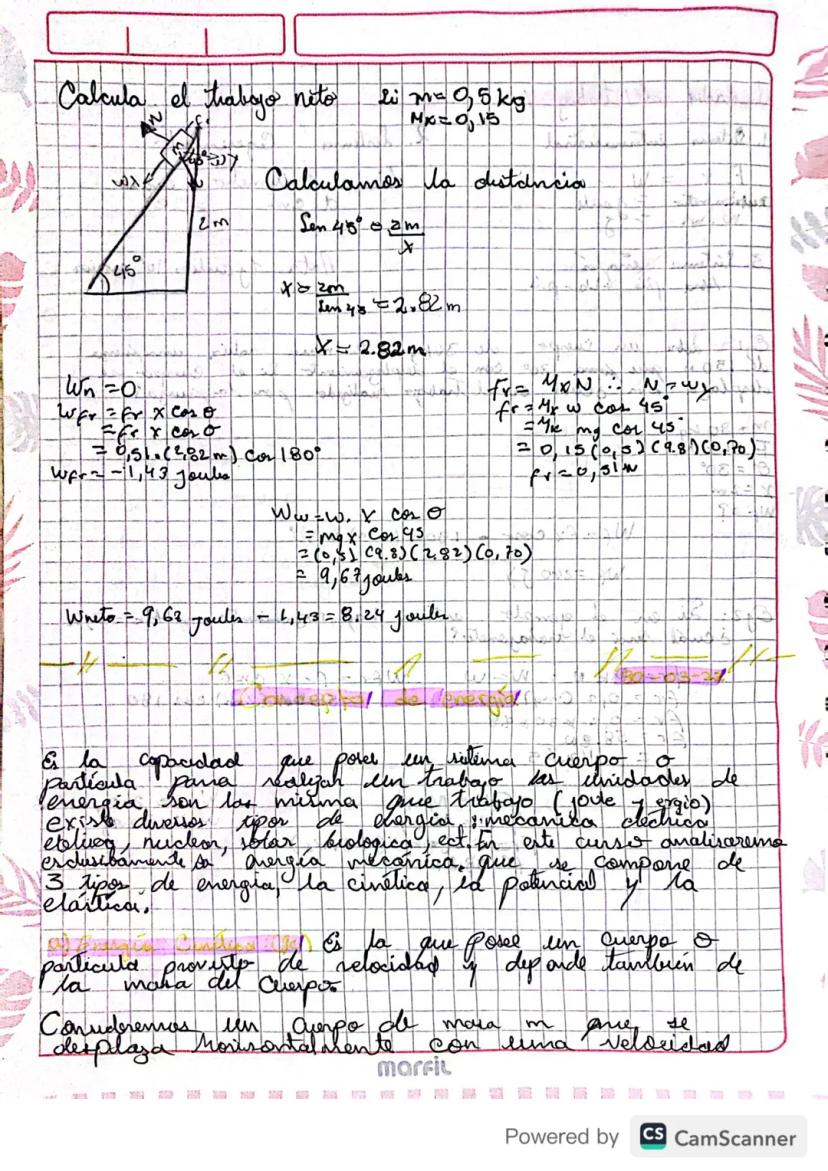 Calcula el trabajo neto si m = 0,5 kg
Mk = 0,15
N
fr
45°
wy
wx
w
2m
45°
Calculamos la distáncia
Sen 45° = 2m / x
x = 2m / Sen 45 = 2.82 m
X = 2.82 m
Wn = 0
Wfr = fr x cos θ
= fr x cos θ
= 0,51.(2,82 m) Cos 180°
Wfr = -1,43 joules
fr = Mk N ∴ N = wy
fr = Mk w cos 45°
= Mk mg cos 45°
= 0,15 (0,5) (9.8) (0,70)
fr = 0,51 N
Ww = w. x cos θ
= mgx Cos 45
= (0,5) (9.8) (2,82) (0,70)
= 9,67 joules
Wneto = 9,67 joules - 1,43 = 8.24 joules
30-03-23
Conceptos de energía
Es la capacidad que posee un sistema cuerpo o
partícula para realizar un trabajo las unidades de
energía son las misma que trabajo (joule y ergio)
existe diversos tipos de energía: mecánica electrica
nuclear, solar biologica, ect. En este curso analisaremo
esclusibamente la energía mecanica, que se compone de
3 tipos de energía, la cinética, la potencial y la
elástica.
a) Energía Cinética (K) Es la que posee un cuerpo o
particula provisto de velocidad y depende también de
la masa del Cuerpo.
Consideremos un cuerpo de masa m que se
desplaza horisontalmente con una velocidad
marfil
Powered by CS CamScanner